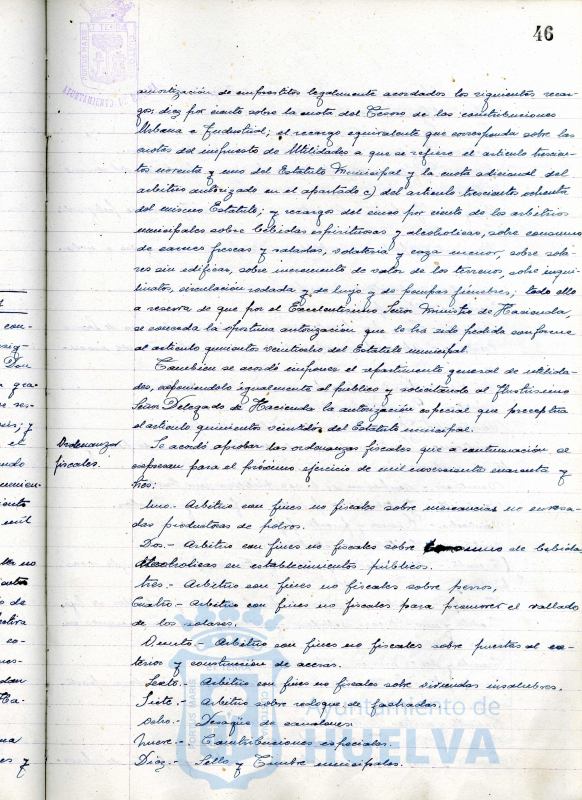 46
amortización de empréstitos legalmente acordados los siguientes recar-
gos; diez por ciento sobre la cuota del Tesoro de las contribuciones
Urbana e Industrial; el recargo equivalente que corresponda sobre las
cuotas del impuesto de Utilidades a que se refiere el artículo trescien-
tos noventa y uno del Estatuto Municipal y la cuota adicional del
arbitrio autorizado en el apartado c) del artículo trescientos ochenta
del mismo Estatuto; y recargos del cinco por ciento de los arbitrios
municipales sobre bebidas espirituosas y alcoholicas, sobre consumo
de carnes frescas y saladas, volateria y caza menor, sobre sola-
res sin edificar, sobre incremento de valor de los terrenos, sobre inqui-
linatos, circulación rodada y de lujo y de pompas fúnebres; todo ello
a reserva de que por el Excelentísimo Señor Ministro de Hacienda,
se conceda la oportuna autorización que le ha sido pedida conforme
al artículo quinientos veintidós del Estatuto municipal.
Tambien se acordó imponer el repartimiento general de utilida-
des, exponiendolo igualmente al público y solicitando al Ilustrísimo
Señor Delegado de Hacienda la autorización especial que preceptúa
el artículo quinientos veintidós del Estatuto municipal.
Ordenanzas
fiscales.
Se acordó aprobar las ordenanzas fiscales que a continuación se
expresan para el próximo ejercicio de mil novecientos cuarenta y
tres:
Uno.- Arbitrio con fines no fiscales sobre mercancias no envasa-
das productoras de polvos.
Dos.- Arbitrio con fines no fiscales sobre consumo de bebidas
alcoholicas en establecimientos públicos.
Tres.- Arbitrio con fines no fiscales sobre perros.
Cuatro.- Arbitrio con fines no fiscales para promover el vallado
de los solares.
Quinto.- Arbitrio con fines no fiscales sobre puertas al ex-
terior y construccion de aceras.
Sexto.- Arbitrio con fines no fiscales sobre viviendas insalubres.
Siete.- Arbitrio sobre revoque de fachadas.
Ocho.- Desagüe de canalones.
Nueve.- Contribuciones especiales.
Diez.- Sello y Timbre municipales.
Ayuntamiento de
HUELVA